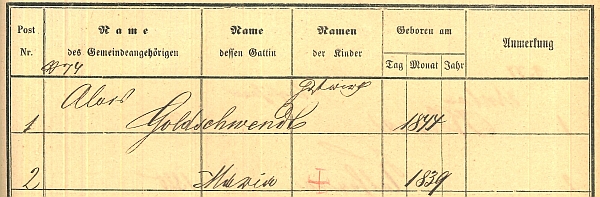 Post Nr. Name des Gemeindeangehörigen Name dessen Gattin Namen der Kinder Geboren am Anmerkung
Tag Monat Jahr
N 74
Alois
1 Goldschwendt 1844
2 Maria 1839